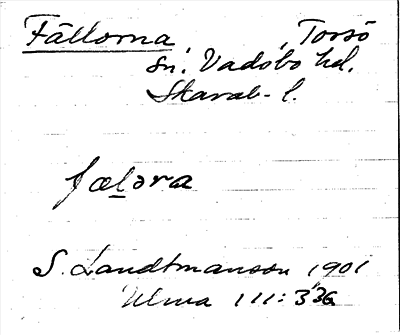 Fällorna, Torsö
sn. Vadsbo hd.
Skarab. l.
fælǝra
S. Landtmanson 1901
Ulma 111: 336